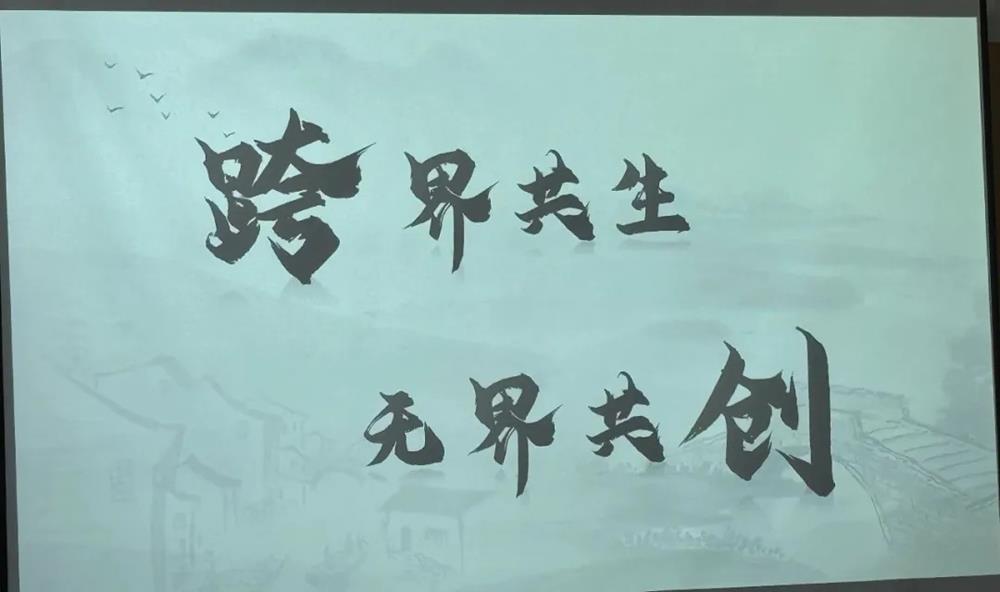 跨界共生
无界共创